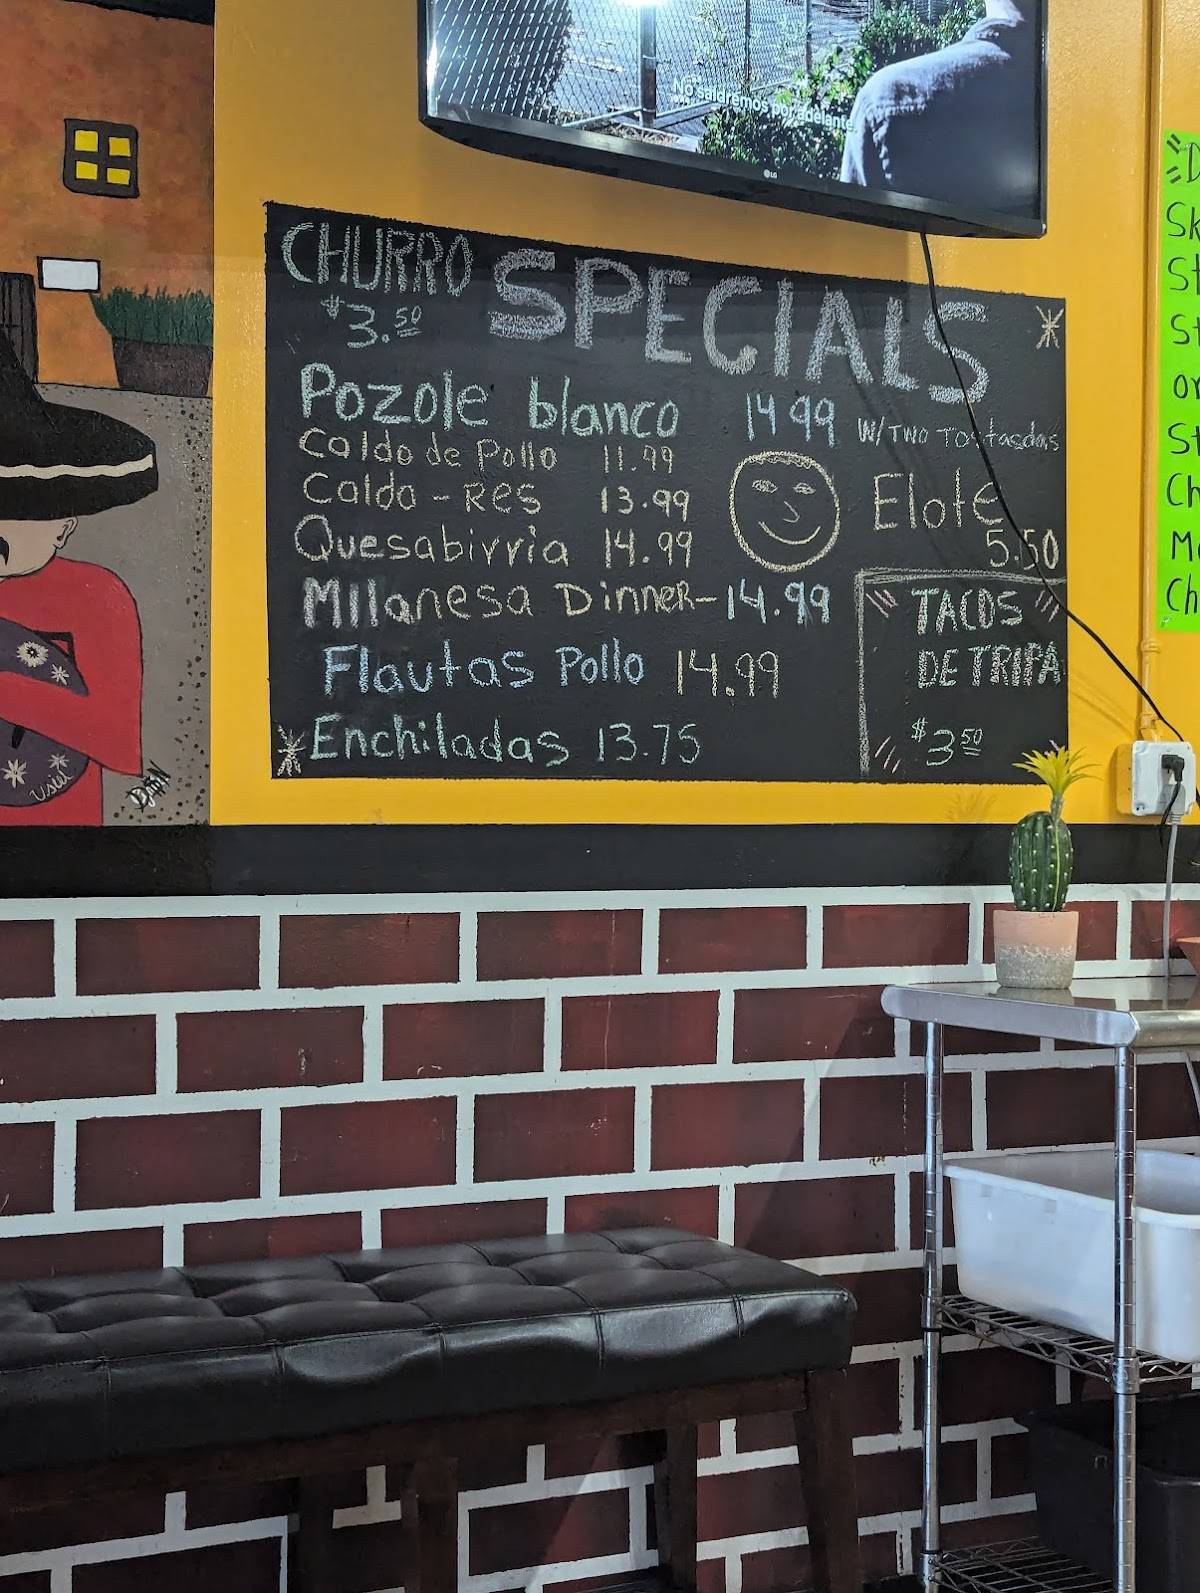 No saldremos por adelante.
LG
CHURRO
$3.50
SPECIALS
Pozole blanco 1499 W/TWO Tostasdas
Caldo de Pollo 11.99
Caldo - Res 13.99
Elote
5.50
Quesabirria 14.99
Milanesa Dinner- 14.99
Flautas Pollo 14.99
Enchiladas 13.75
TACOS
DE TRIPA
$350
Usiel